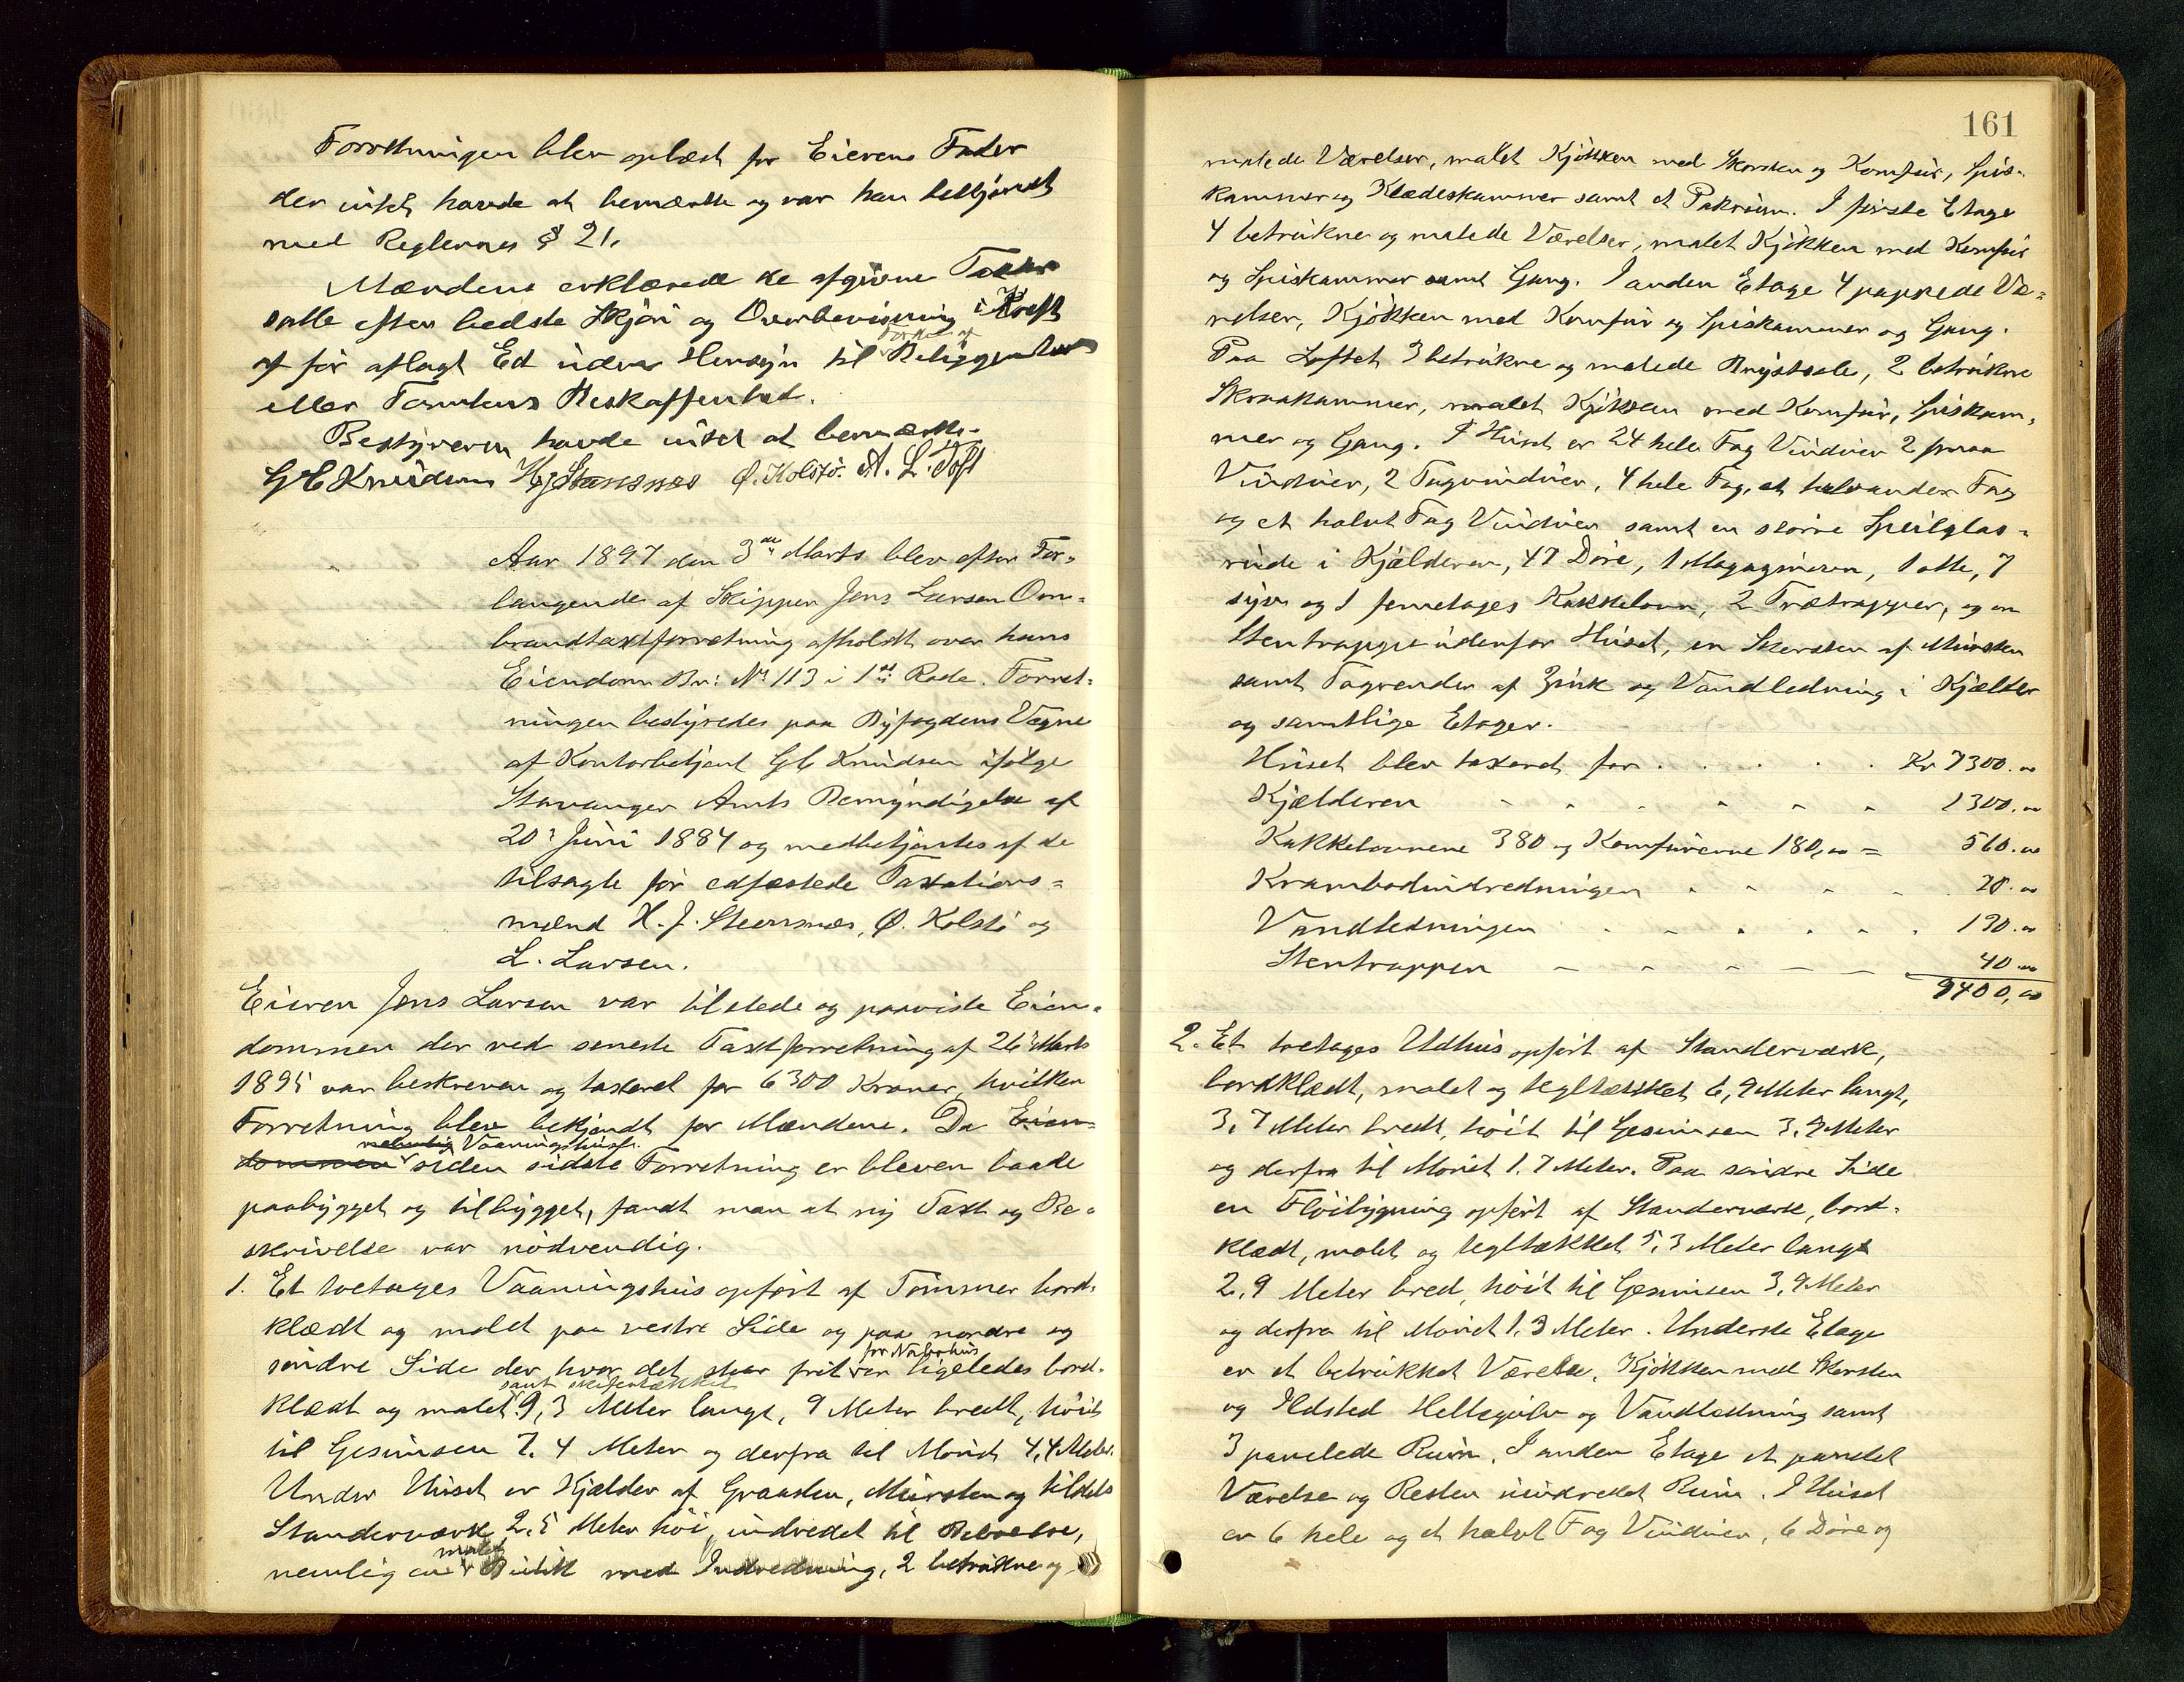 Forretningen blev oplæst for Eierens Fader
der intet havde at bemærke og var han bekjendt
med Reglernes § 21.
Mændene erklærede de afgivne Taxter
satte efter bedste Skjøn og Overbevisning i Kraft
af før aflagt Ed uden Hensyn til Beliggenhed
eller Tomtens Beskaffenhed.
Bestyreren havde intet at bemærke.
Gb Knudsen HJ Steensnæs Ø. Kolstø. A. L. Toft
Aar 1897 den 3de Marts blev efter For-
langende af Skipper Jens Larsen Om-
brandtaxtforretning afholdt over hans
Eiendom Br: No 113 i 1ste Rode. Forret-
ningen bestyredes paa Byfogdens Vegne
af Kontorbetjent Gb Knudsen ifølge
Stavanger Amts Bemyndigelse af
20' Juni 1884 og medbetjentes af de
tilsagte før edfæstede Taxtations-
mænd H. J. Steensnæs, Ø. Kolstø og
L. Larsen.
Eieren Jens Larsen var tilstede og paaviste Eien-
dommen der ved seneste Taxtforretning af 26' Marts
1895 var beskreven og taxeret for 6300 Kroner, hvilken
Forretning blev bekjendt for Mændene. Da Eien-
nemlig Vaaningshuset
dommen siden sidste Forretning er bleven baade
paabygget og tilbygget, fandt man at ny Taxt og Be-
skrivelse var nødvendig.
1. Et toetages Vaaningshus opført af Tømmer bord-
klædt og malet paa vestre Side og paa nordre og
for Nabohus
søndre Side der hvor det staar frit er ligeledes bord-
samt skifertækket
klædt og malet 9,3 Meter langt, 9 Meter bredt, høit
til Gesimsen 7.4 Meter og derfra til Mønet 4,4 Meter.
Under Huset er Kjælder af Graasten, Mursten og tildels
Standerværk 2.5 Meter høi, indredet til Beboelse,
malet
nemlig en Butik med Indredning, 2 betrukne og
161
malede Værelser, malet Kjøkken med Skorsten og Komfur, Spis-
kammer og Klædeskammer samt et Pakrum. I første Etage
4 betrukne og malede Værelser, malet Kjøkken med Komfur
og Spiskammer samt Gang. I anden Etage 4 pappede Væ-
relser, Kjøkken med Komfur og Spiskammer og Gang.
Paa Loftet 3 betrukne og malede Brystsale, 2 betrukne
Skraakammer, malet Kjøkken med Komfur, Spiskam-
mer og Gang. I Huset er 24 hele Fag Vinduer 2 smaa
Vinduer, 2 Tagvinduer, 4 hele Fag, et halvanden Fag
og et halvt Fag Vinduer samt en større Speilglas-
rude i Kjælderen, 47 Døre, 1 Magazinovn, 1 otte, 7
syv og 1 femetages Kakkelovn, 2 Trætrapper, og en
Stentrappe udenfor Huset, en Skorsten af Mursten
samt Tagrender af Zink og Vandledning i Kjælder
og samtlige Etager.
Huset blev taxeret for Kr 7300.00
Kjælderen 1300.00
Kakkelovnene 380 og Komfurerne 180,00 = 560.00
Krambodindredningen 70.00
Vandledningen 130.00
Stentrappen 40.00
9400,00
2. Et toetages Udhus opført af Standerværk,
bordklædt, malet og tegltækket 6,9 Meter langt,
3,7 Meter bredt, høit til Gesimsen 3,9 Meter
og derfra til Mønet 1.7 Meter. Paa søndre Side
en Fløibygning opført af Standerværk, bord-
klædt, malet og tegltækket 5,3 Meter langt
2,9 Meter bred, høit til Gesimsen 3,9 Meter
og derfra til Mønet 1,3 Meter. Underste Etage
er et betrukket Værelse, Kjøkken med Skorsten
og Ildsted Hellegulv og Vandledning samt
3 panelede Rum. I anden Etage et panelet
Værelse og Resten uindredet Rum. I Huset
er 6 hele og et halvt Fag Vinduer, 6 Døre og